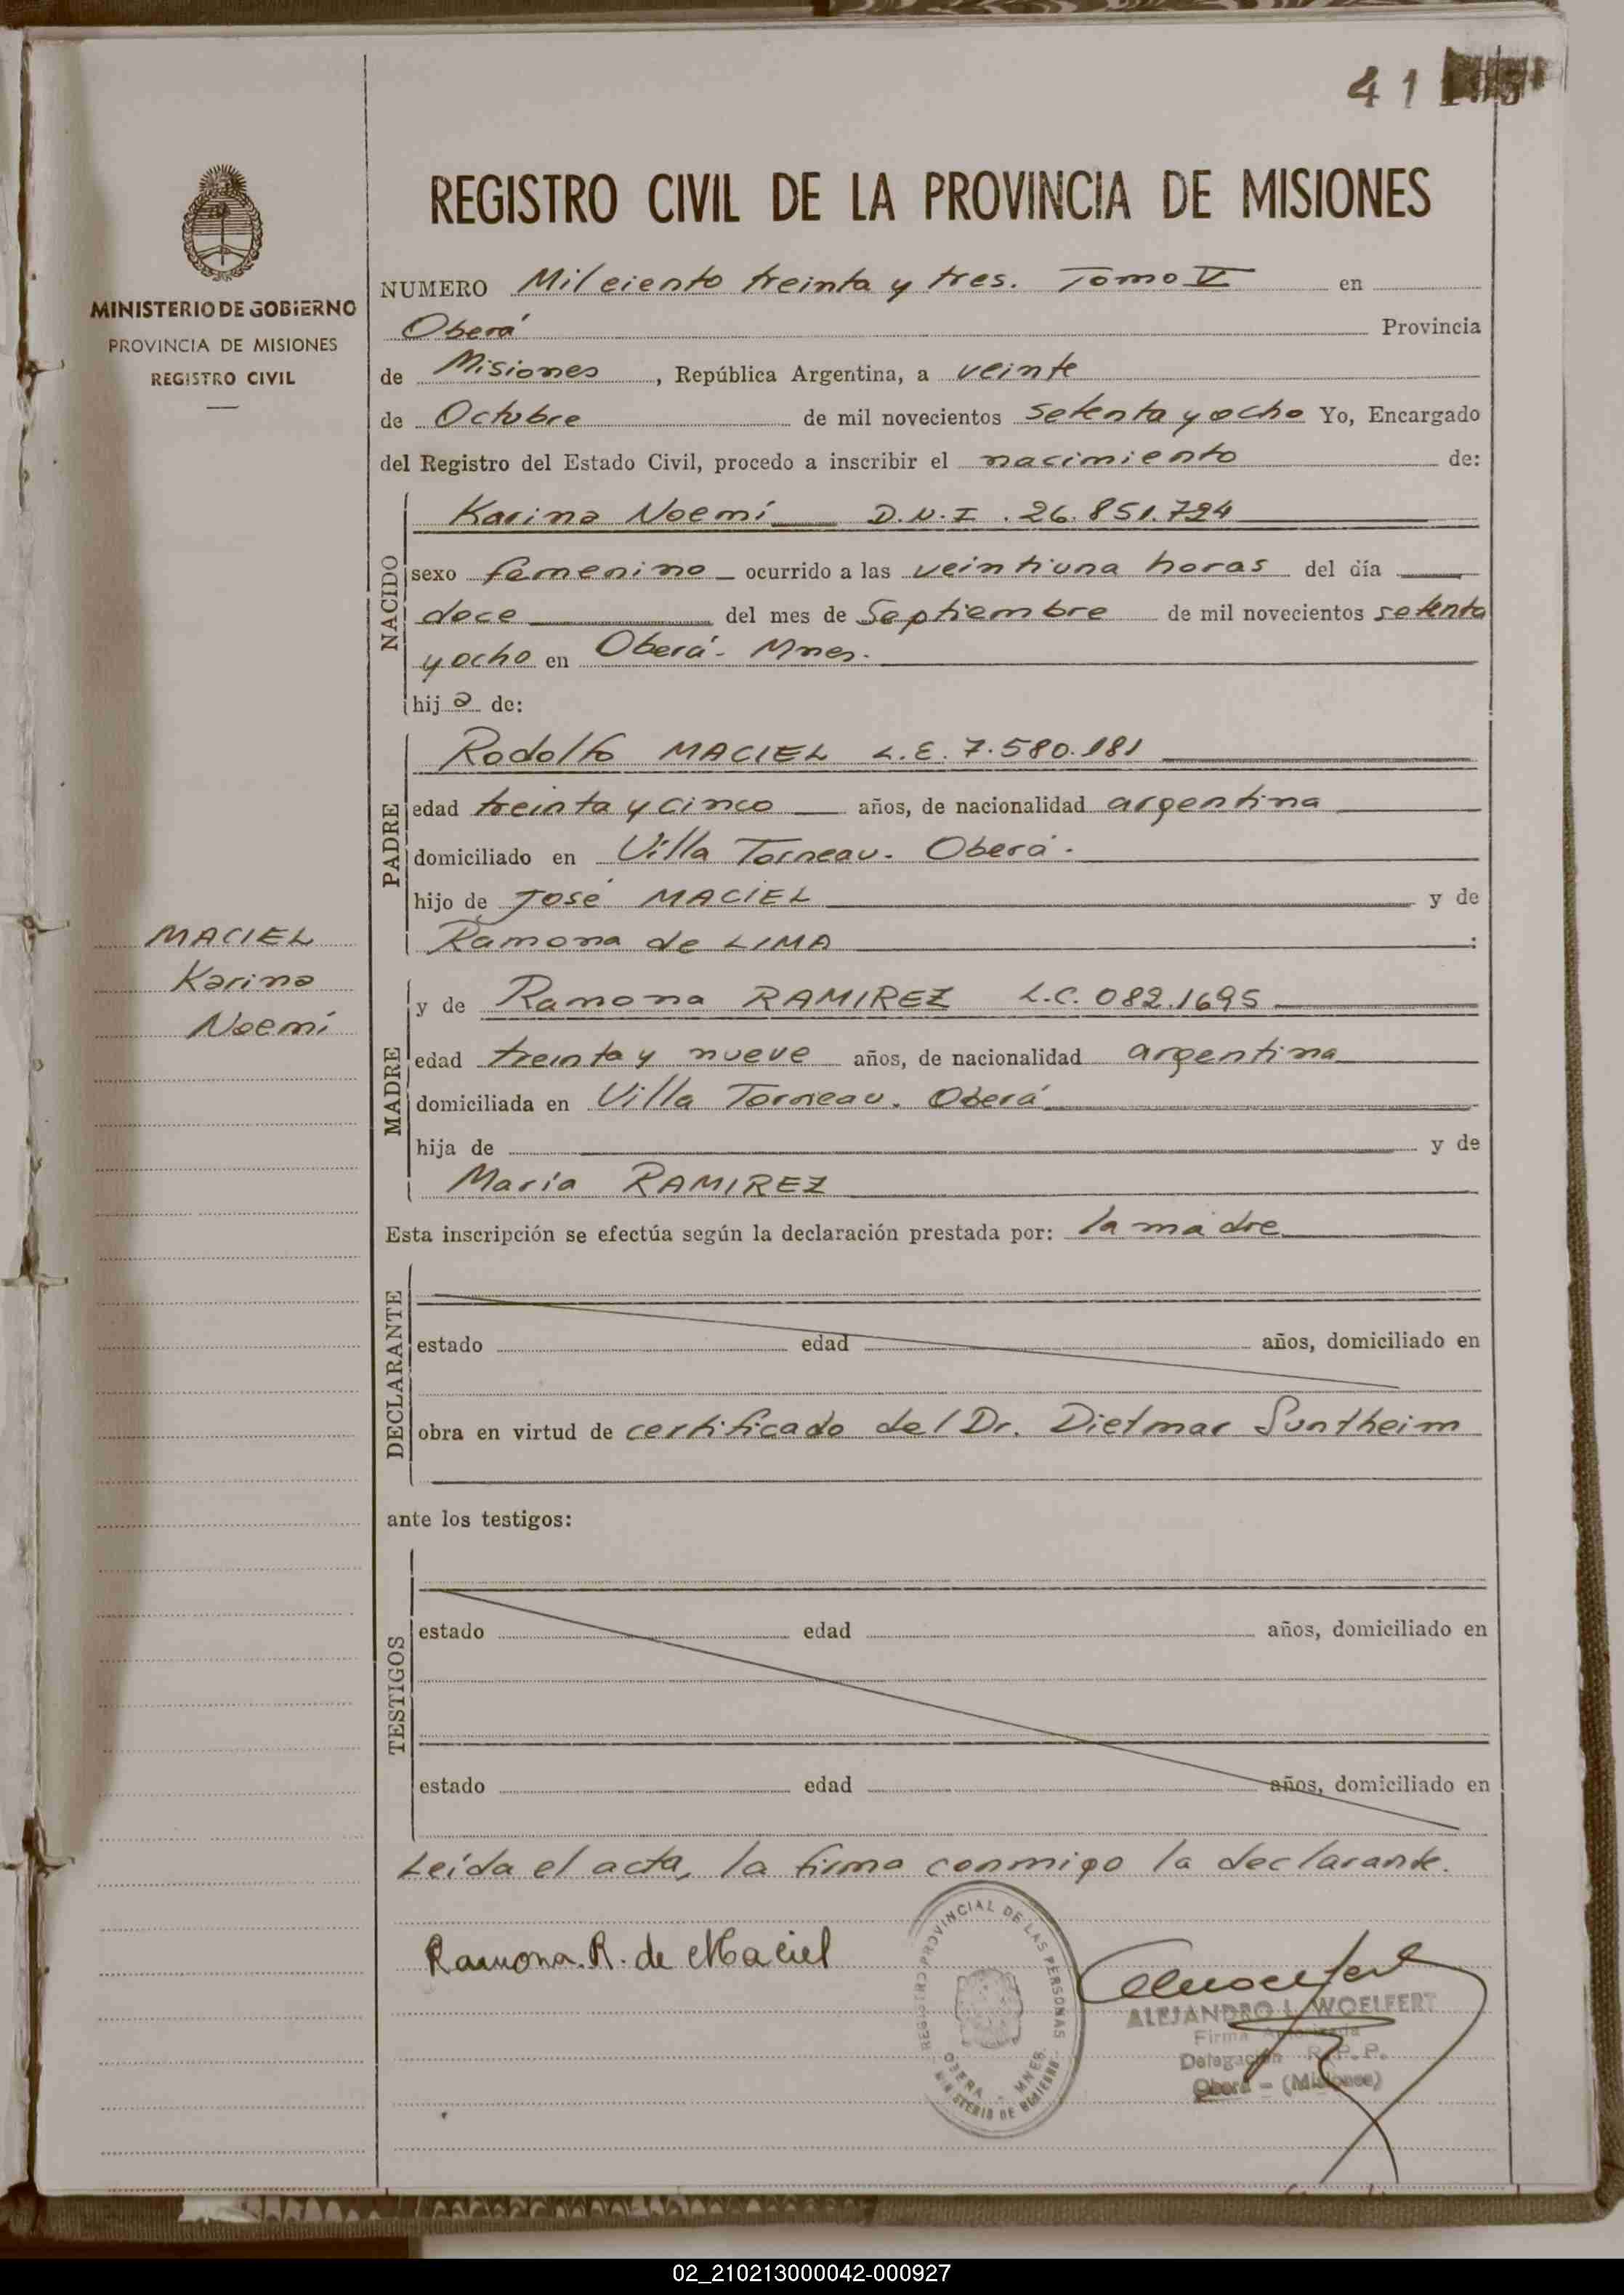 41
REGISTRO CIVIL DE LA PROVINCIA DE MISIONES
MINISTERIO DE GOBIERNO
PROVINCIA DE MISIONES
REGISTRO CIVIL
NUMERO Mil ciento treinta y tres. Tomo V en
Oberá Provincia
de Misiones, República Argentina, a veinte
de Octubre de mil novecientos setenta y ocho Yo, Encargado
del Registro del Estado Civil, procedo a inscribir el nacimiento de:
NACIDO
Karina Noemí D.N.I. 26.851.724
sexo femenino ocurrido a las veintiuna horas del día
doce del mes de Septiembre de mil novecientos setenta
y ocho en Oberá - Mnes.
hija de:
PADRE
Rodolfo MACIEL L.E. 7.580.181
edad treinta y cinco años, de nacionalidad argentina
domiciliado en Villa Torneau. Oberá.
hijo de José MACIEL y de
Ramona de LIMA :
MACIEL
Karina
Noemí
MADRE
y de Ramona RAMIREZ L.C. 082.1695
edad treinta y nueve años, de nacionalidad argentina
domiciliada en Villa Torneau. Oberá
hija de y de
María RAMIREZ
Esta inscripción se efectúa según la declaración prestada por: la madre
DECLARANTE
estado edad años, domiciliado en
obra en virtud de certificado del Dr. Dietmar Suntheim
ante los testigos:
TESTIGOS
estado edad años, domiciliado en
estado edad años, domiciliado en
Leída el acta, la firma conmigo la declarante.
Ramona. R. de Maciel
REGISTRO PROVINCIAL DE LAS PERSONAS
OBERA - MNES.
MINISTERIO DE GOBIERNO
ALEJANDRO L. WOELFERT
Firma Autorizada
Delegación R.P.P.
Oberá - (Misiones)
02_210213000042-000927